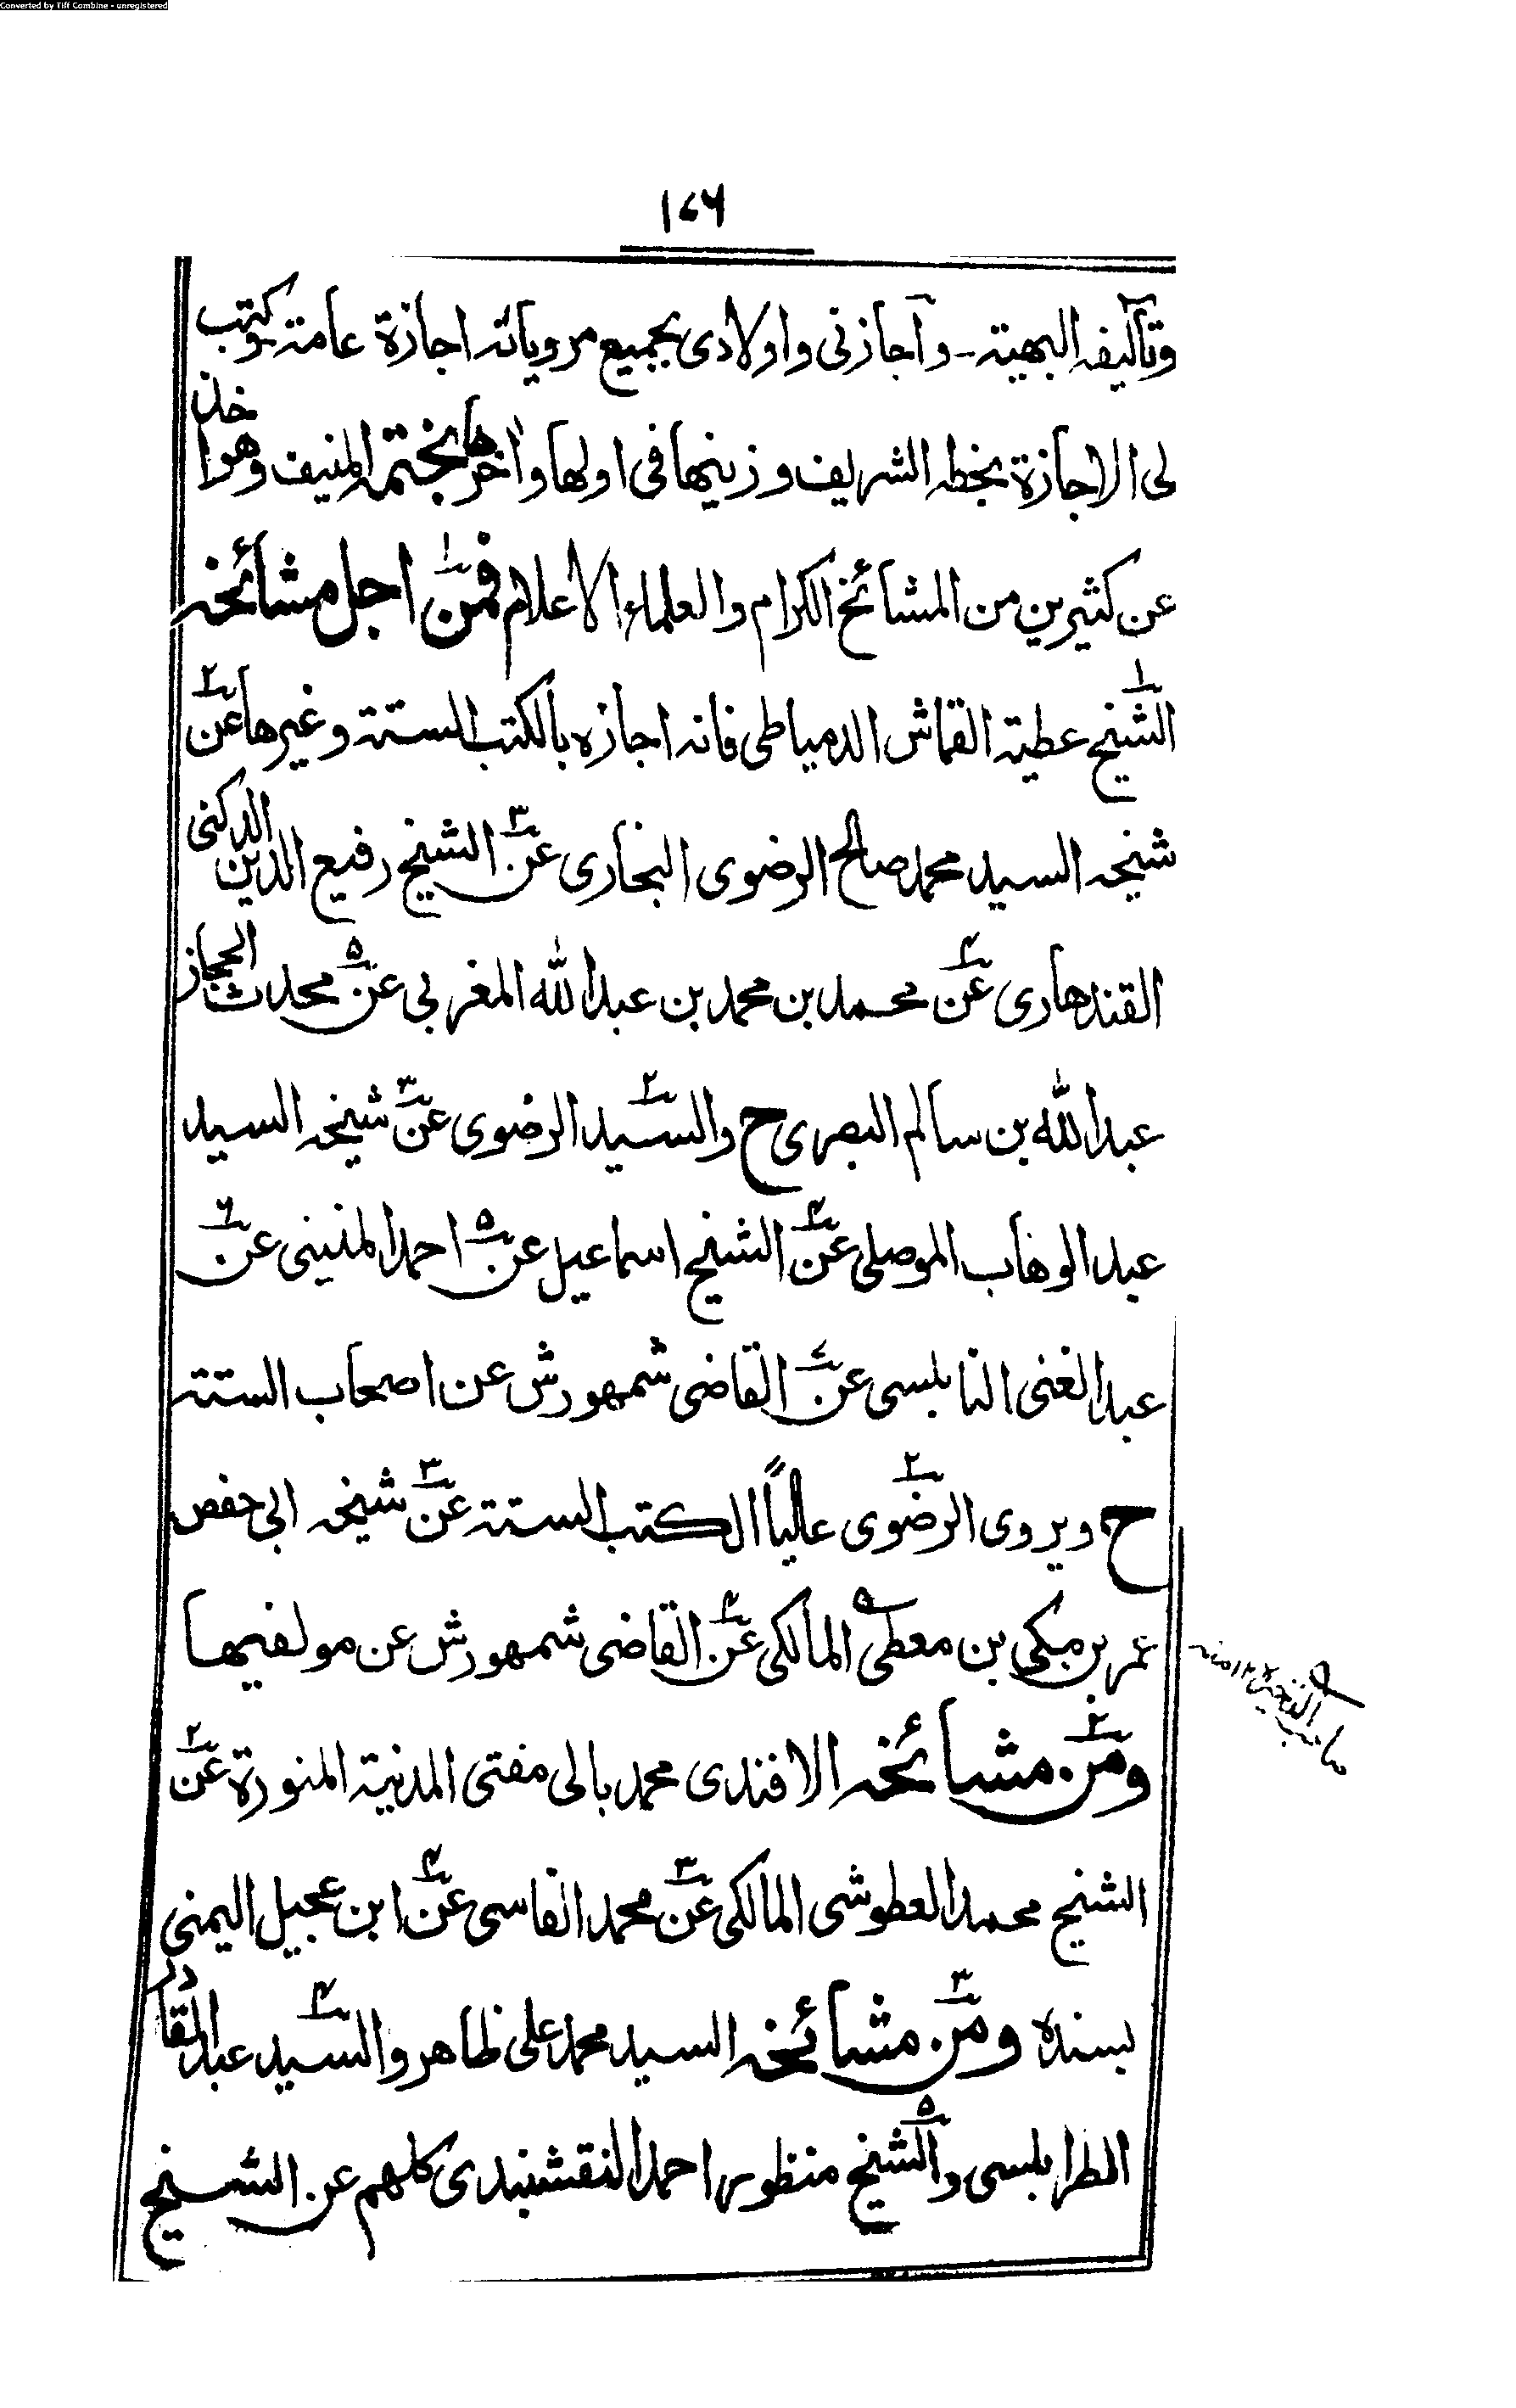 Converted by Tiff Combine - unregistered
١٧٦
وتآليفه البهية - وآجازني واولادى بجميع مروياته اجازة عامة وكتب
لى الاجازة بخطه الشريف وزينها فى اولها وآخرها بختمه المنيف وهو اخذ
عن كثيرين من المشائخ الكرام والعلماء الاعلام فمن ١ اجل مشائخه
الشيخ ١ عطية القماش الدمياطى فانه اجازه بالكتب الستة وغيرها عن ٢
شيخه السيد محمد صالح الرضوى البخارى عن ٣ الشيخ رفيع الدين الدكنى
القندهارى عن ٤ محمد بن محمد بن عبد الله المغربى عن ٥ محدث الحجاز
عبد الله بن سالم البصرى ح والسيد ٢ الرضوى عن ٣ شيخه السيد
عبد الوهاب الموصلى عن ٤ الشيخ اسماعيل عن ٥ احمد المنينى عن ٦
عبد الغنى النابلسى عن ٧ القاضى شمهورش عن اصحاب الستة
ح ويروى الرضوى ٢ عالياً الكتب الستة عن ٣ شيخه ابى حفص
عمر بن مكى بن معطى المالكى عن ٤ القاضى شمهورش عن مولفيها
ومن ٢ مشائخه الافندى محمد بالى مفتى المدينة المنورة عن ٢
الشيخ محمد العطوشى المالكى عن ٣ محمد الفاسى عن ٤ ابن عجيل اليمنى
بسنده ومن ٣ مشائخه السيد محمد على ظاهر والسيد ٤ عبد القادر
الطرابلسى والشيخ ٥ منظور احمد النقشبندى كلهم عن الشيخ
صاحب ١٢ منه